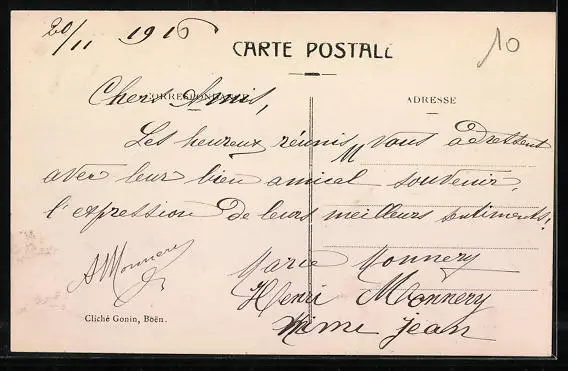 20/11 1916
10
CARTE POSTALE
CORRESPONDANCE
ADRESSE
Chers Amis,
Les heureux réunis, vous adressent
M
avec leur bien amical souvenir,
l'expression de leurs meilleurs sentiments.
AMonnery
Marie Monnery
Henri Monnery
Mimi Jean
Cliché Gonin, Boën.